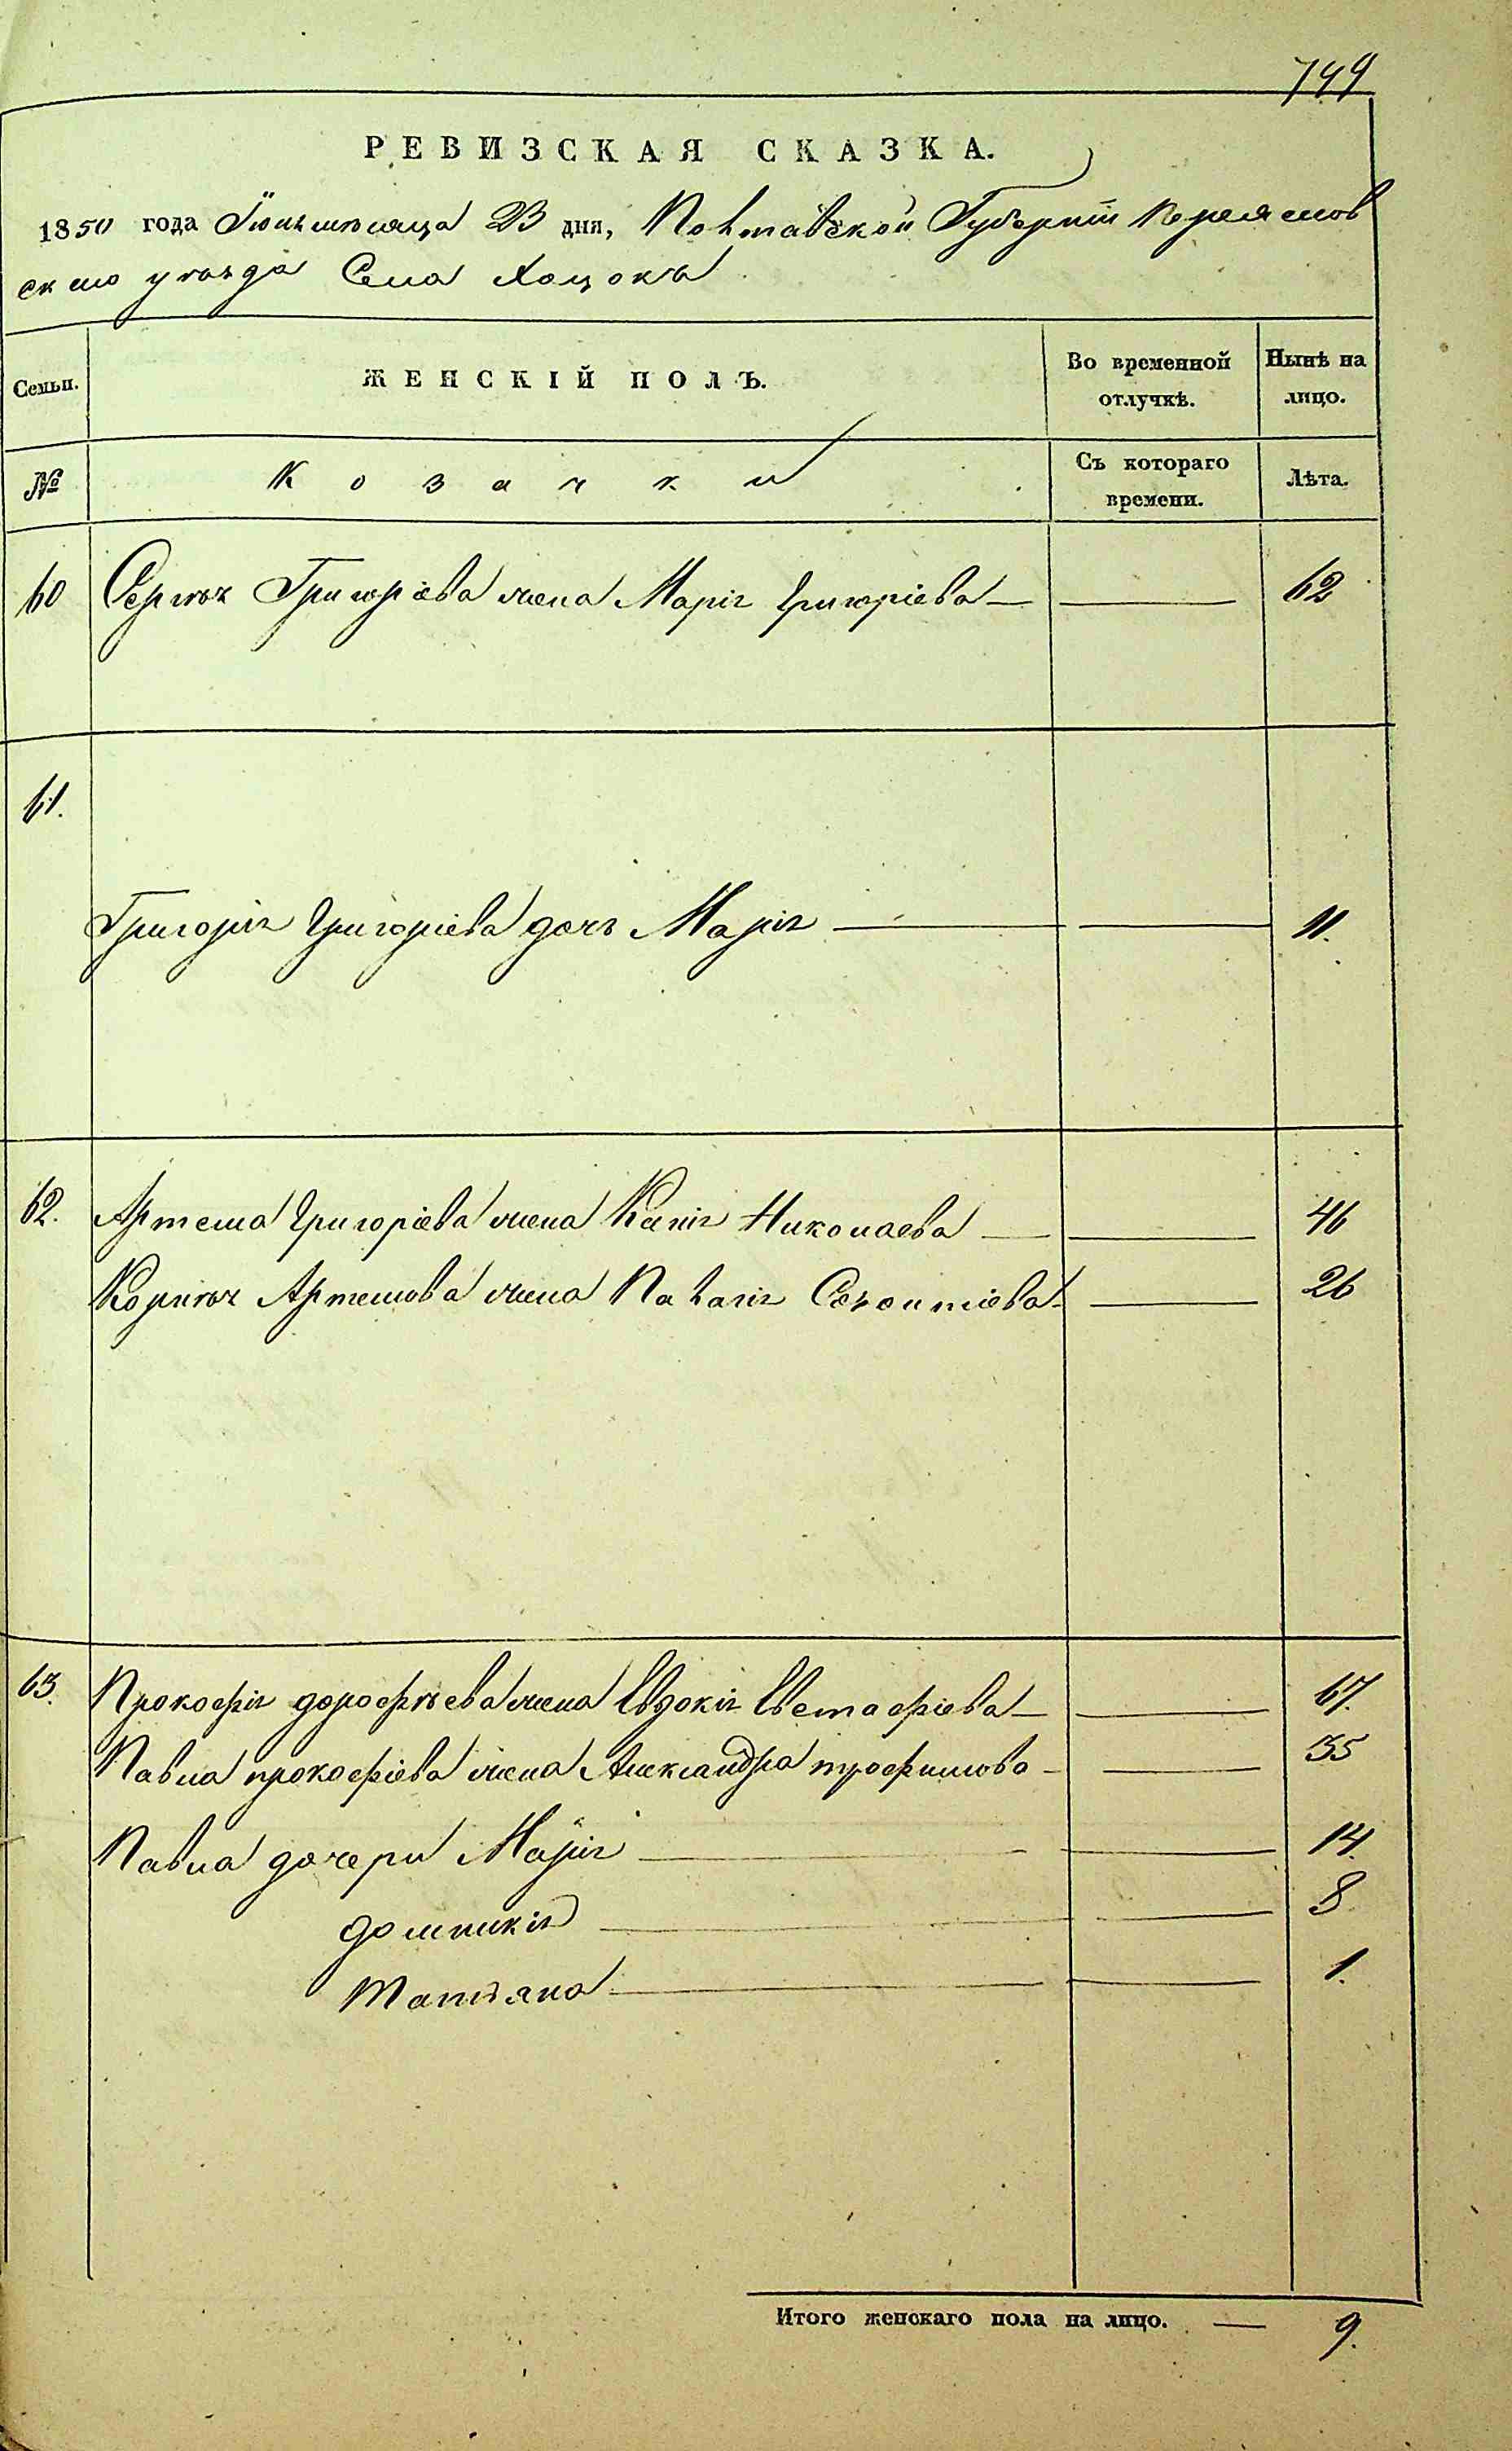 749
РЕВИЗСКАЯ СКАЗКА.
1850 года Іюнь мѣсяца 23 дня, Полтавской Губерніи Переяслов
скаго уѣзда Села Хоцокъ
Семьи.
ЖЕНСКІЙ ПОЛЪ.
Во временной отлучкѣ.
Нынѣ на лицо.
№
Козачки
Съ котораго времени.
Лѣта.
60 Сергѣя Григоріева жена Марія Григоріева — — 62
61.
Григорія Григоріева дочь Марія — — 11.
62. Артема Григоріева жена Ксенія Николаева — — 46
Корнѣя Артемова жена Палагія — 26
63. Прокофія дорофѣева жена Евдокія Евстафіева — — 67.
Павла прокофіева жена Александра трофимова — — 35
Павла дочери Марія — — 14.
домникія — — 8
Татіяна — — 1.
Итого женскаго пола на лицо. — 9.